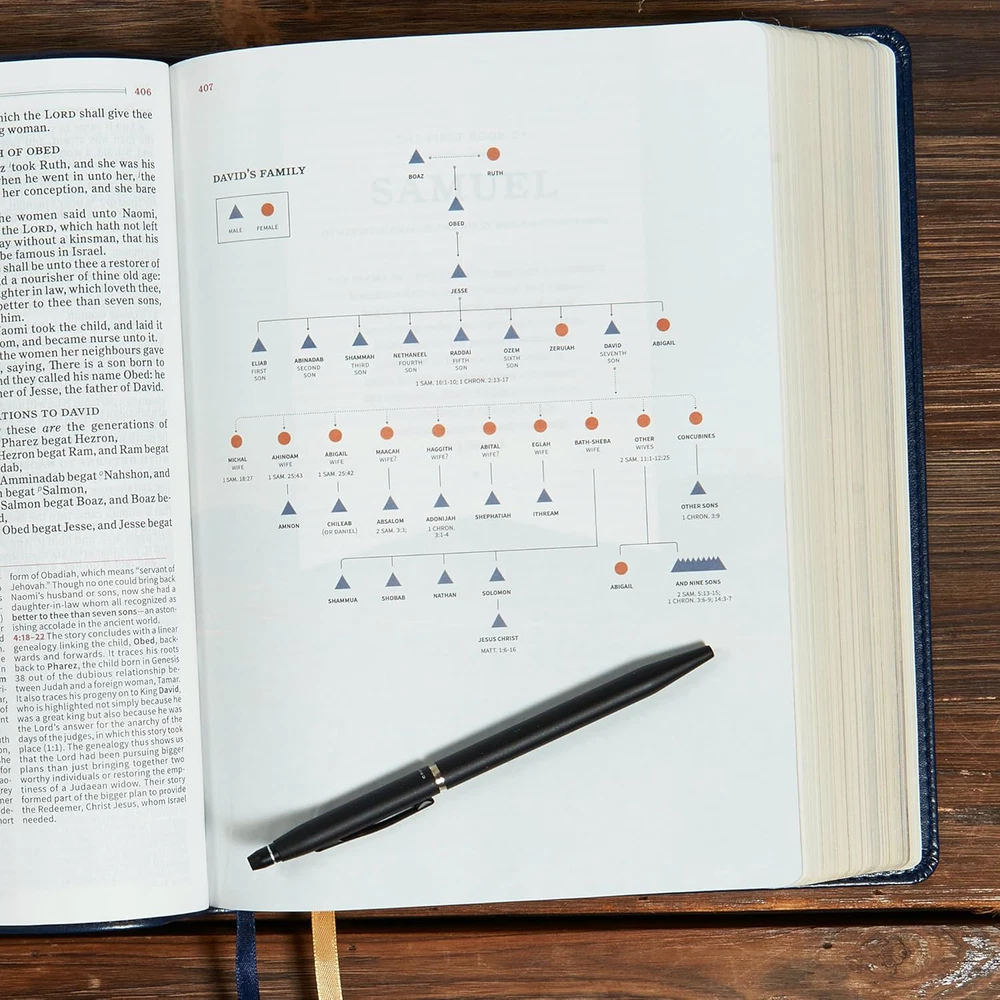 406
hich the LORD shall give thee
g woman.
H OF OBED
z took Ruth, and she was his
hen he went in unto her, the
her conception, and she bare
he women said unto Naomi,
the LORD, which hath not left
ay without a kinsman, that his
be famous in Israel.
shall be unto thee a restorer of
d a nourisher of thine old age:
ghter in law, which loveth thee,
better to thee than seven sons,
him.
Naomi took the child, and laid it
om, and became nurse unto it.
the women her neighbours gave
, saying, There is a son born to
nd they called his name Obed: he
er of Jesse, the father of David.
ATIONS TO DAVID
these are the generations of
Pharez begat Hezron,
Hezron begat Ram, and Ram begat
dab,
Amminadab begat Nahshon, and
n begat Salmon,
Salmon begat Boaz, and Boaz be-
d,
Obed begat Jesse, and Jesse begat
form of Obadiah, which means "servant of
Jehovah." Though no one could bring back
Naomi's husband or sons, now she had a
daughter-in-law whom all recognized as
better to thee than seven sons—an aston-
ishing accolade in the ancient world.
4:18–22 The story concludes with a linear
genealogy linking the child, Obed, back-
wards and forwards. It traces his roots
back to Pharez, the child born in Genesis
38 out of the dubious relationship be-
tween Judah and a foreign woman, Tamar.
It also traces his progeny on to King David,
who is highlighted not simply because he
was a great king but also because he was
the Lord's answer for the anarchy of the
days of the judges, in which this story took
place (1:1). The genealogy thus shows us
that the Lord had been pursuing bigger
plans than just bringing together two
worthy individuals or restoring the emp-
tiness of a Judaean widow. Their story
formed part of the bigger plan to provide
the Redeemer, Christ Jesus, whom Israel
needed.
407
DAVID'S FAMILY
MALE FEMALE
SAMUEL
BOAZ RUTH
OBED
JESSE
ELIAB ABINADAB SHAMMAH NETHANEEL RADDAI OZEM ZERUIAH DAVID ABIGAIL
FIRST SECOND THIRD FOURTH FIFTH SIXTH SEVENTH
SON SON SON SON SON SON SON
1 SAM. 16:1-10; 1 CHRON. 2:13-17
MICHAL AHINOAM ABIGAIL MAACAH HAGGITH ABITAL EGLAH BATH-SHEBA OTHER CONCUBINES
WIFE WIFE WIFE WIFE? WIFE? WIFE? WIFE WIFE WIVES
1 SAM. 18:27 1 SAM. 25:43 1 SAM. 25:42 2 SAM. 11:1-12:25
AMNON CHILEAB ABSALOM ADONIJAH SHEPHATIAH ITHREAM OTHER SONS
(OR DANIEL) 2 SAM. 3:3; 1 CHRON. 1 CHRON. 3:9
3:1-4
SHAMMUA SHOBAB NATHAN SOLOMON ABIGAIL AND NINE SONS
2 SAM. 5:13-15;
1 CHRON. 3:6-9; 14:3-7
JESUS CHRIST
MATT. 1:6-16